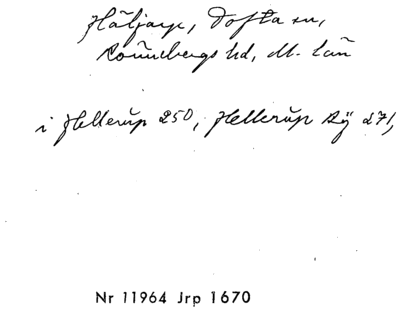 Häljarp, Tofta sn,
Rönnebergs hd, M. län
i Hellerup 250, Hellerup Ry 271,
Nr 11964 Jrp 1670